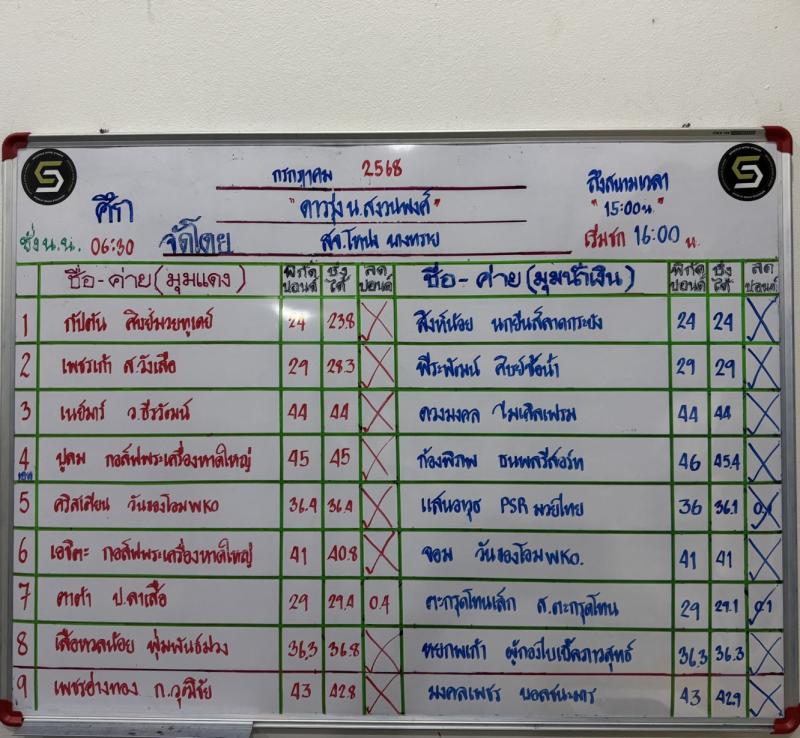 กรกฎาคม 2568
ศึก "ดาวรุ่ง น.สงวนพงศ์" ถึงสนามเวลา "15:00น."
ชั่ง น.น. 06:30 จัดโดย เริ่มชก 16:00 น.
ชื่อ-ค่าย(มุมแดง) พิกัดปอนด์ ชั่งได้ ลดปอนด์ ชื่อ-ค่าย(มุมน้ำเงิน) พิกัดปอนด์ ชั่งได้ ลดปอนด์
1 กัปตัน 24 23.8 สิงห์น้อย 24 24
2 เพชรเก้า ส.วังเสือ 29 28.3 พีระพัฒน์ 29 29
3 เนย์มาร์ ว.ธีรวัฒน์ 44 44 ดวงมงคล 44 44
4 กอล์ฟพระเครื่องหาดใหญ่ 45 45 ก้องพิภพ ธนพลรีสอร์ท 46 45.4
5 คริสเตียน วันของโอมWKO 36.4 36.4 แสนอาวุธ PSR มวยไทย 36 36.1 0.1
6 เอชิตะ กอล์ฟพระเครื่องหาดใหญ่ 41 40.8 จอม วันของโอมWKO. 41 41
7 ตาต้า ป.ลาเสือ 29 29.4 0.4 ตะกรุดโทนเล็ก ส.ตะกรุดโทน 29 29.1 0.1
8 พุ่มพันธ์ม่วง 36.3 36.8 หยกพเก้า 36.3 36.3
9 เพชรอ่างทอง ก.วุฒิชัย 43 42.8 มงคลเพชร 43 42.9